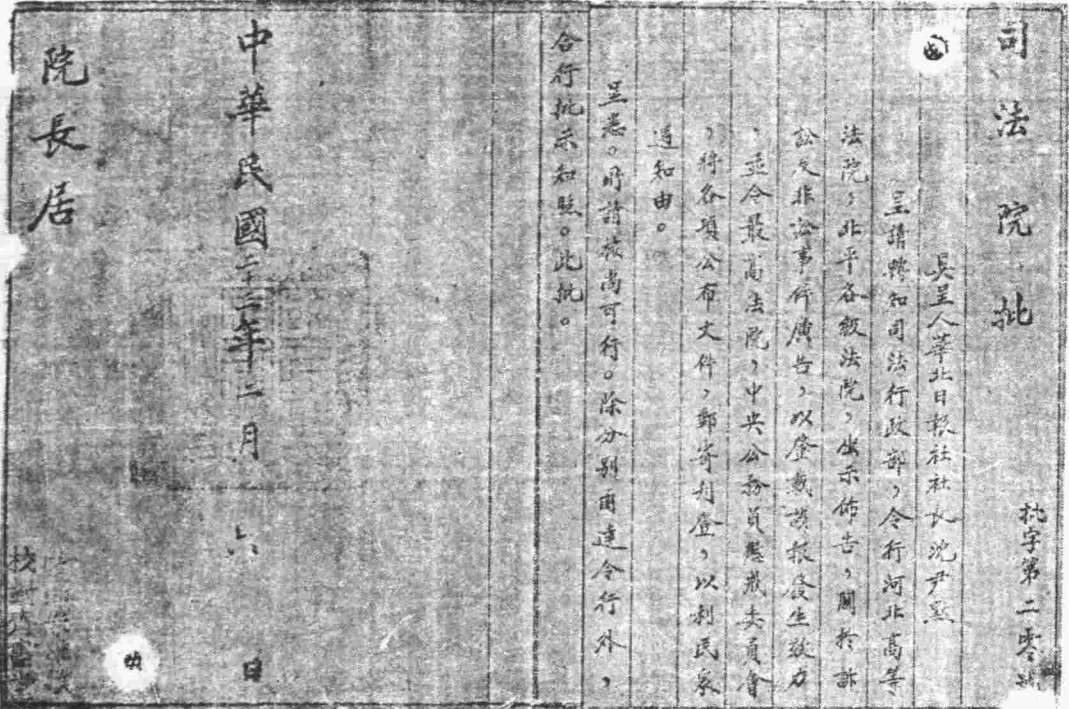 司法院批
批字第二零號
具呈人華北日報社社長沈尹默
呈請轉知司法行政部，令行河北高等
法院，北平各級法院，出示佈告，關於訴
訟及非訟事件廣告，以登載該報發生效力
，並令最高法院，中央公務員懲戒委員會
，將各項公布文件，郵寄刊登，以利民衆
週知由。
呈悉。所請核尚可行。除分別函達令行外，
合行批示知照。此批。
中華民國二十二年二月六日
院長居
校對